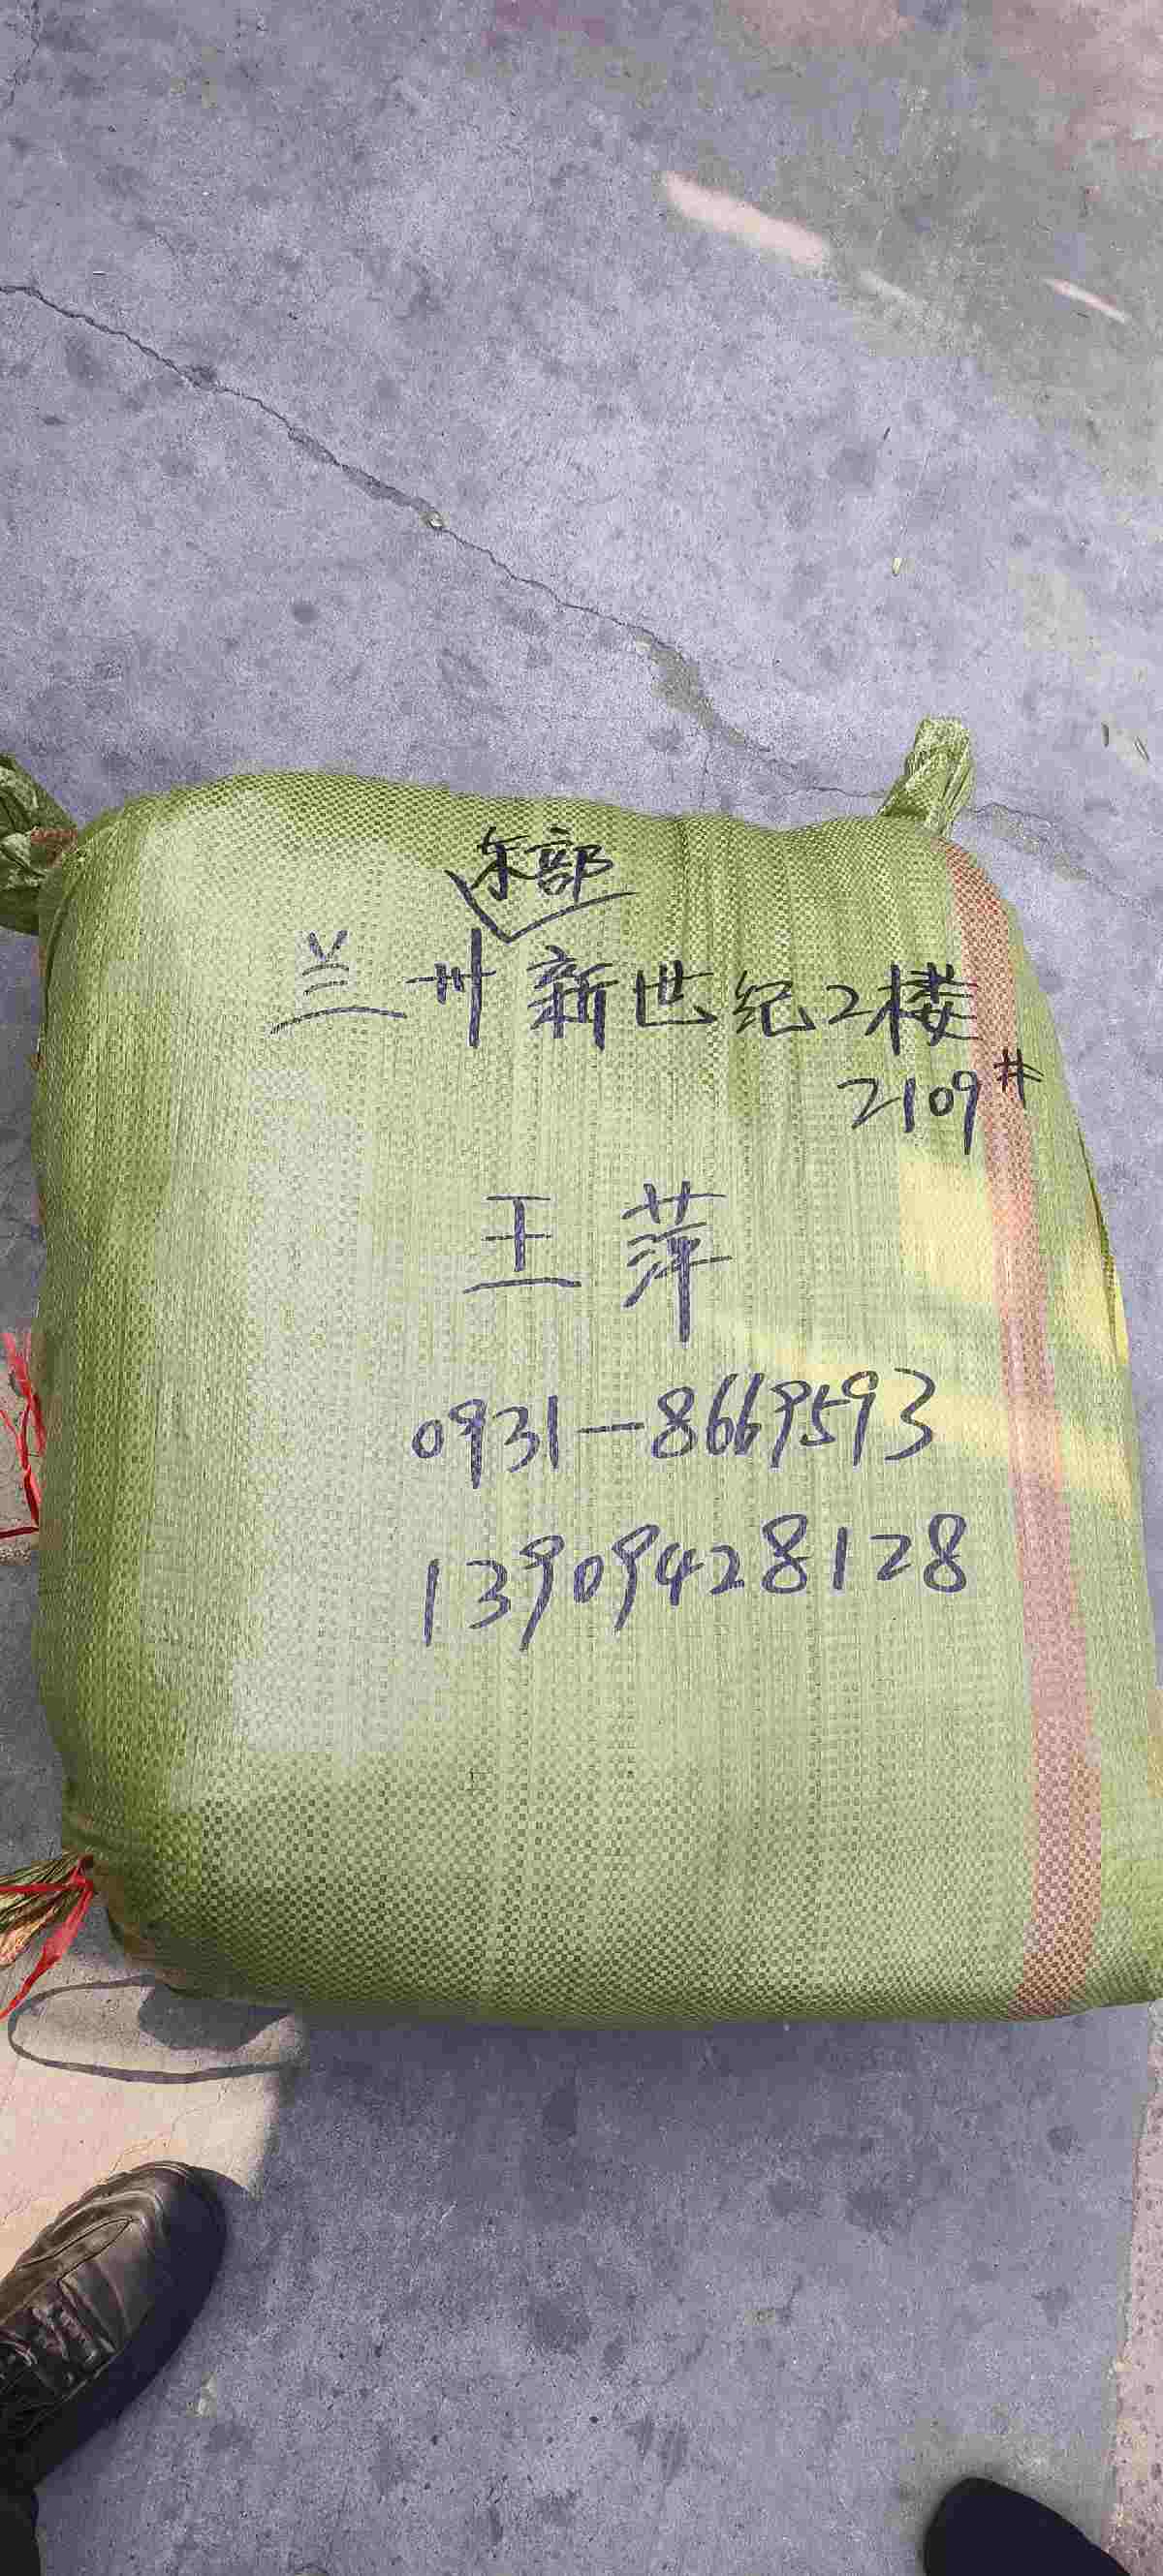 东部
兰州新世纪2楼
2109#
王萍
0931-8669593
13909428128